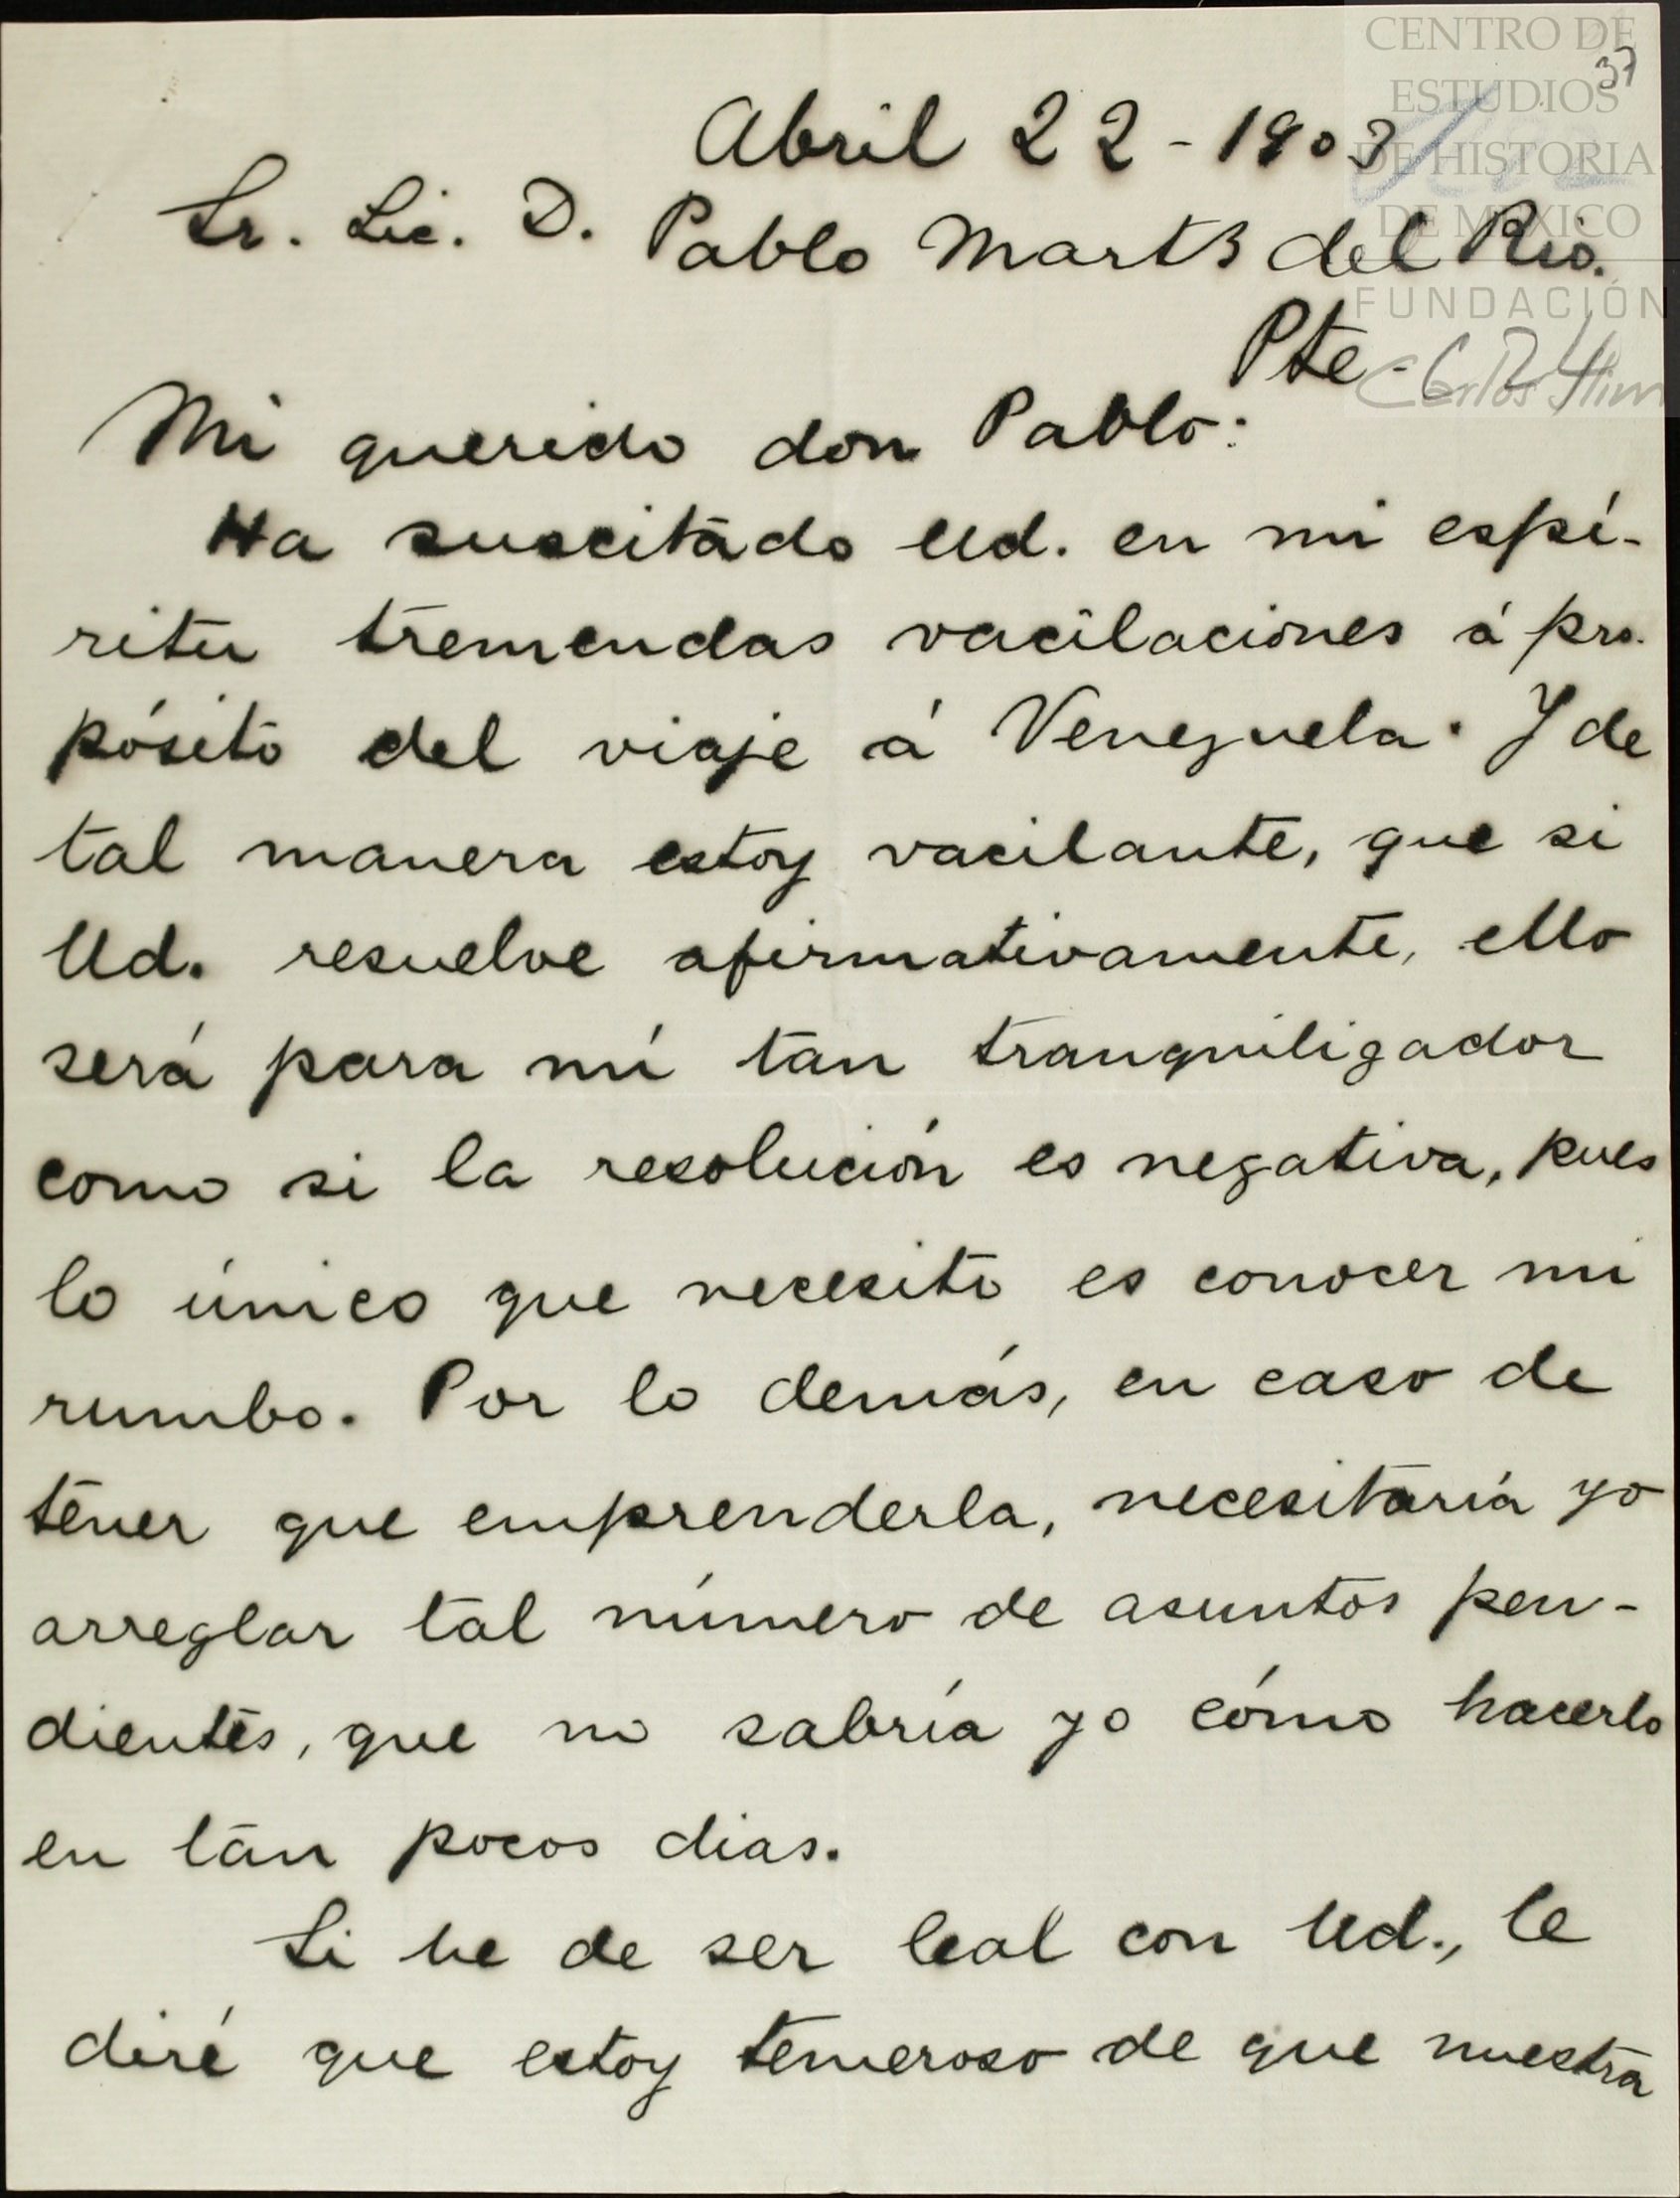 CENTRO DE
ESTUDIOS
DE HISTORIA
DE MÉXICO
FUNDACIÓN
Carlos Slim
37
Abril 22-1903
Sr. Lic. D. Pablo Martz del Rio.
Pte.
Mi querido don Pablo:
Ha suscitado Ud. en mi espí-
ritu tremendas vacilaciones á pro-
pósito del viaje á Venezuela. Y de
tal manera estoy vacilante, que si
Ud. resuelve afirmativamente, ello
será para mí tan tranquilizador
como si la resolución es negativa, pues
lo único que necesito es conocer mi
rumbo. Por lo demás, en caso de
tener que emprenderla, necesitaría yo
arreglar tal número de asuntos pen-
dientes, que no sabría yo cómo hacerlo
en tan pocos dias.
Si he de ser leal con Ud., le
diré que estoy temeroso de que nuestra